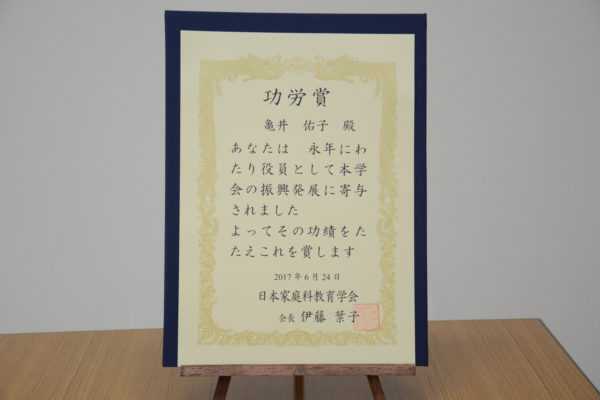 功労賞
亀井 佑子 殿
あなたは 永年にわ
たり役員として本学
会の振興発展に寄与
されました
よってその功績をた
たえこれを賞します
2017年6月24日
日本家庭科教育学会
会長 伊藤 葉子